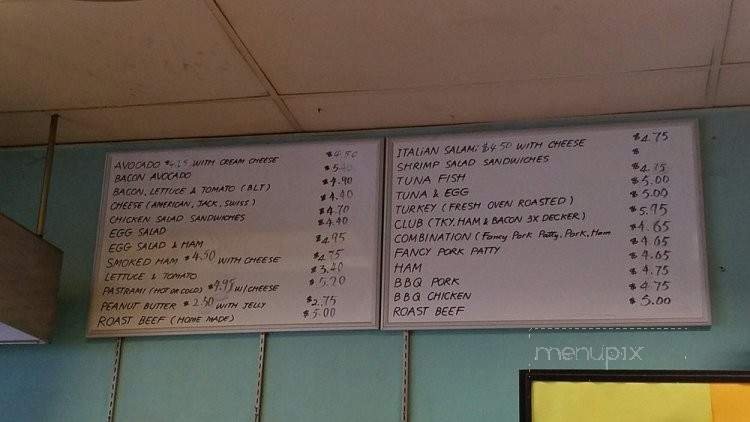 AVOCADO $4.25 WITH CREAM CHEESE $4.50
BACON AVOCADO $5.40
BACON, LETTUCE & TOMATO (BLT) $4.90
CHEESE (AMERICAN, JACK, SWISS) $4.40
CHICKEN SALAD SANDWICHES $4.70
EGG SALAD $4.40
EGG SALAD & HAM $4.95
SMOKED HAM $4.50 WITH CHEESE $4.75
LETTUCE & TOMATO $3.40
PASTRAMI (HOT OR COLD) $4.95 W/CHEESE 5.20
PEANUT BUTTER $2.50 WITH JELLY $2.75
ROAST BEEF (HOME MADE) $5.00
ITALIAN SALAMI $4.50 WITH CHEESE $4.75
SHRIMP SALAD SANDWICHES $
TUNA FISH $4.75
TUNA & EGG $5.00
TURKEY (FRESH OVEN ROASTED) $5.00
CLUB (TKY, HAM & BACON 3X DECKER) $5.75
COMBINATION (Fancy Pork Patty, Pork, Ham $4.65
FANCY PORK PATTY $4.65
HAM $4.65
BBQ PORK $4.75
BBQ CHICKEN $4.75
ROAST BEEF $5.00
menupix